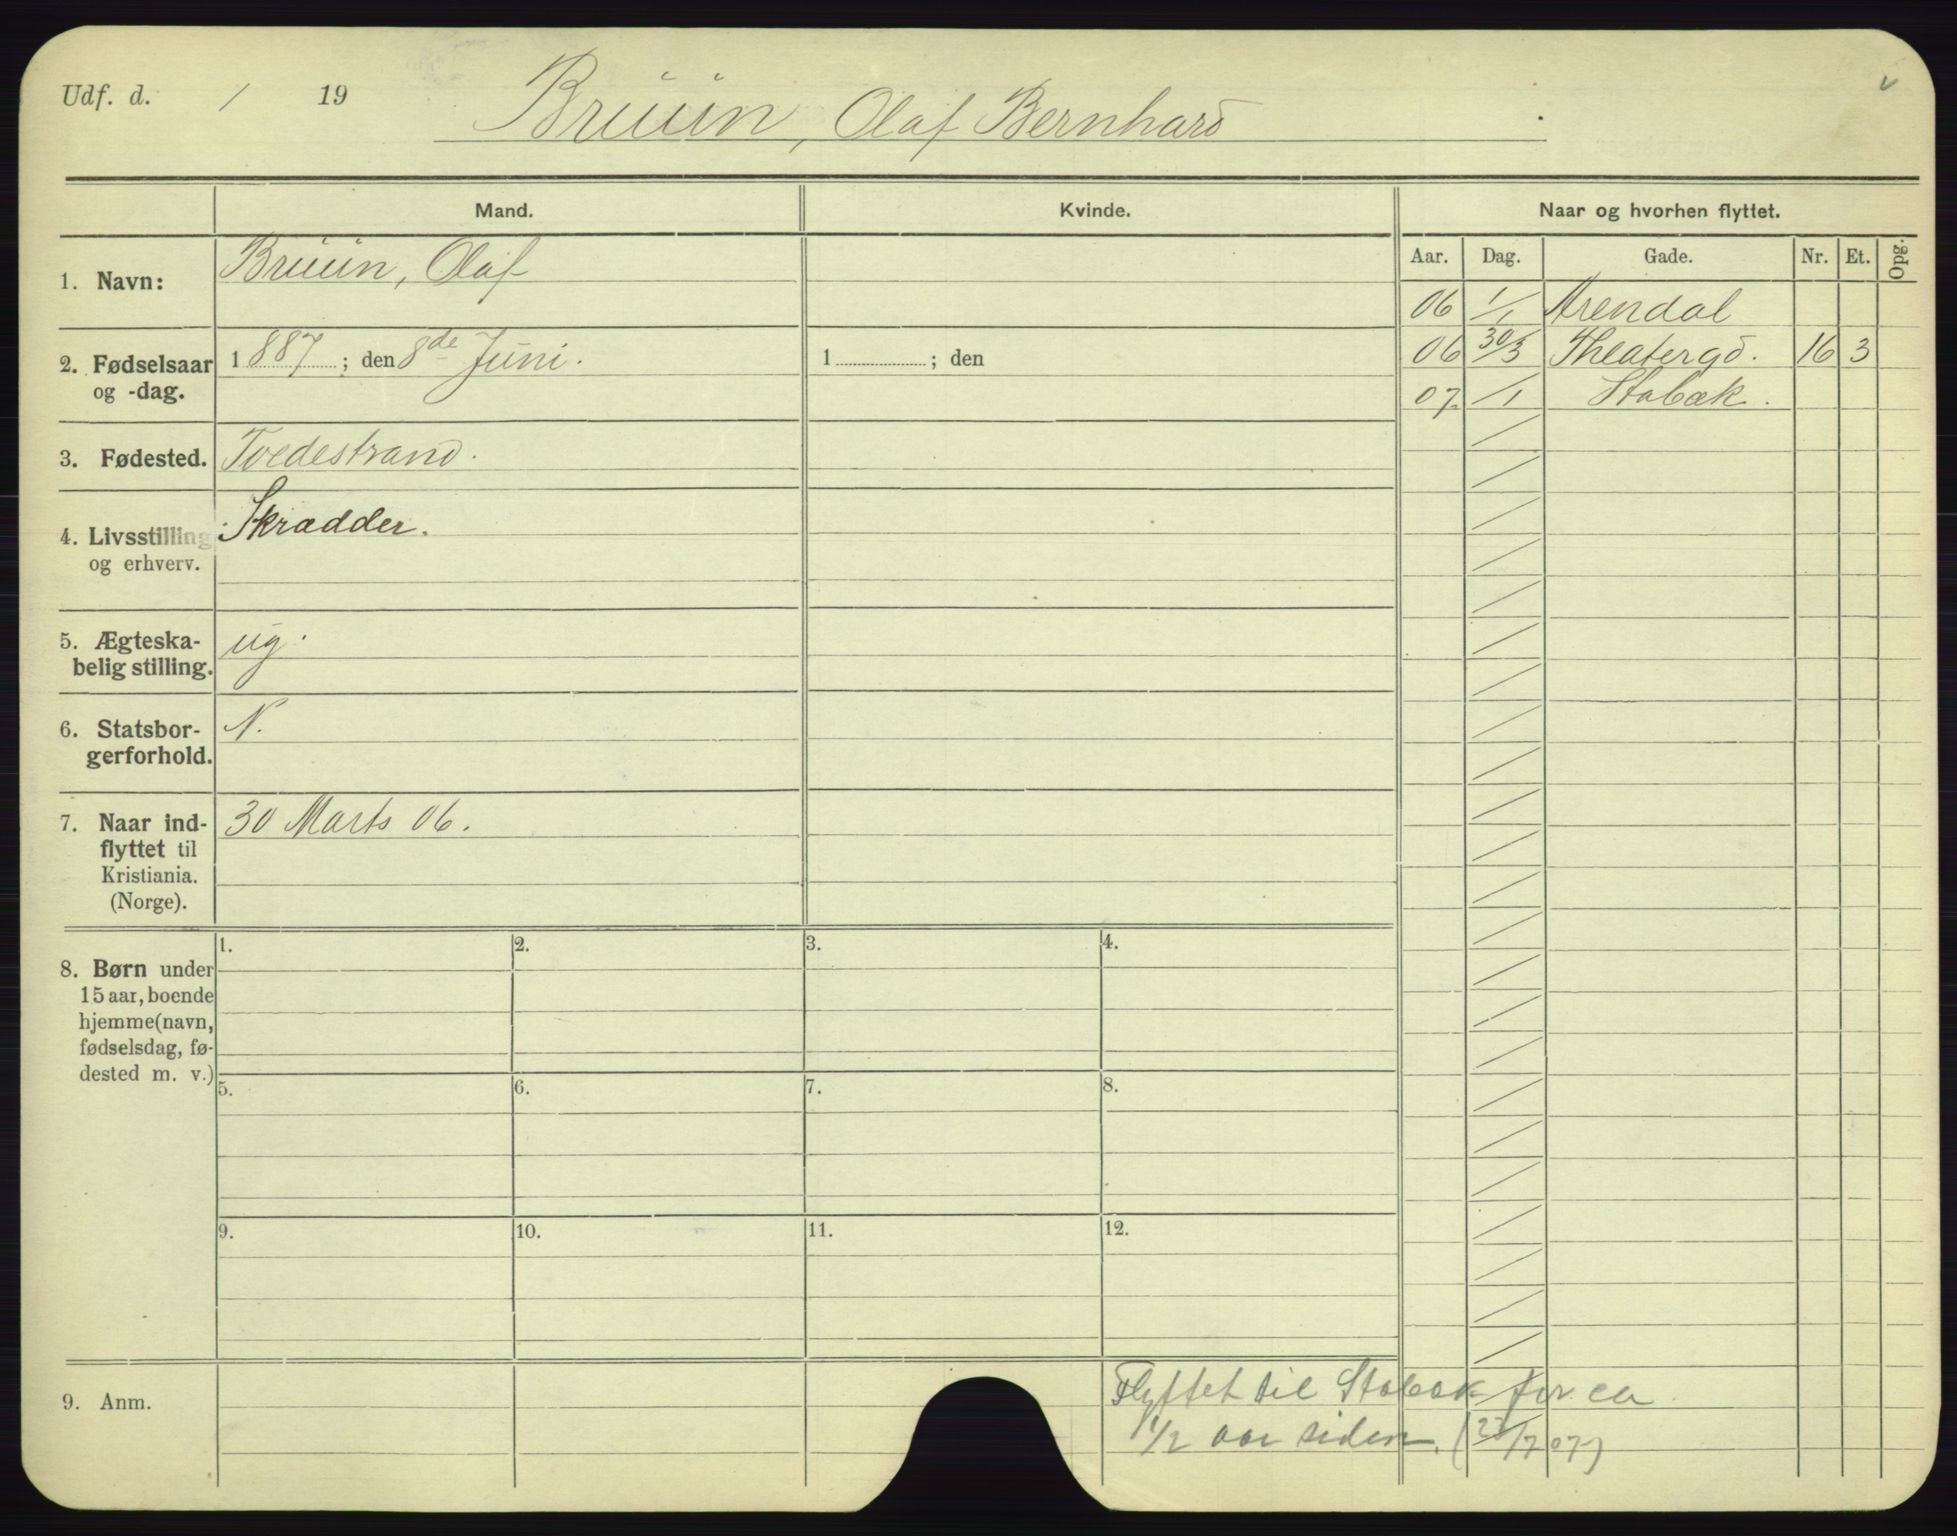 Udf. d. / 19
Bruun, Olaf Bernhard
Mand. Kvinde. Naar og hvorhen flyttet.
Aar. Dag. Gade. Nr. Et. Opg.
1. Navn: Bruun, Olaf
06 1/1 Arendal
2. Fødselsaar og -dag. 1887; den 8de Juni. 1 ; den
06 30/3 Theatergd. 16 3
07. /1 Stabæk.
3. Fødested. Tvedestrand.
4. Livsstilling og erhverv. Skrædder.
5. Ægteska-
belig stilling. ug.
6. Statsbor-
gerforhold. N.
7. Naar ind-
flyttet til
Kristiania.
(Norge). 30 Marts 06.
8. Børn under
15 aar, boende
hjemme (navn,
fødselsdag, fø-
dested m. v.)
1. 2. 3. 4.
5. 6. 7. 8.
9. 10. 11. 12.
9. Anm.
Flyttet til Stabæk for ca
1/2 aar siden. (23/7 07)